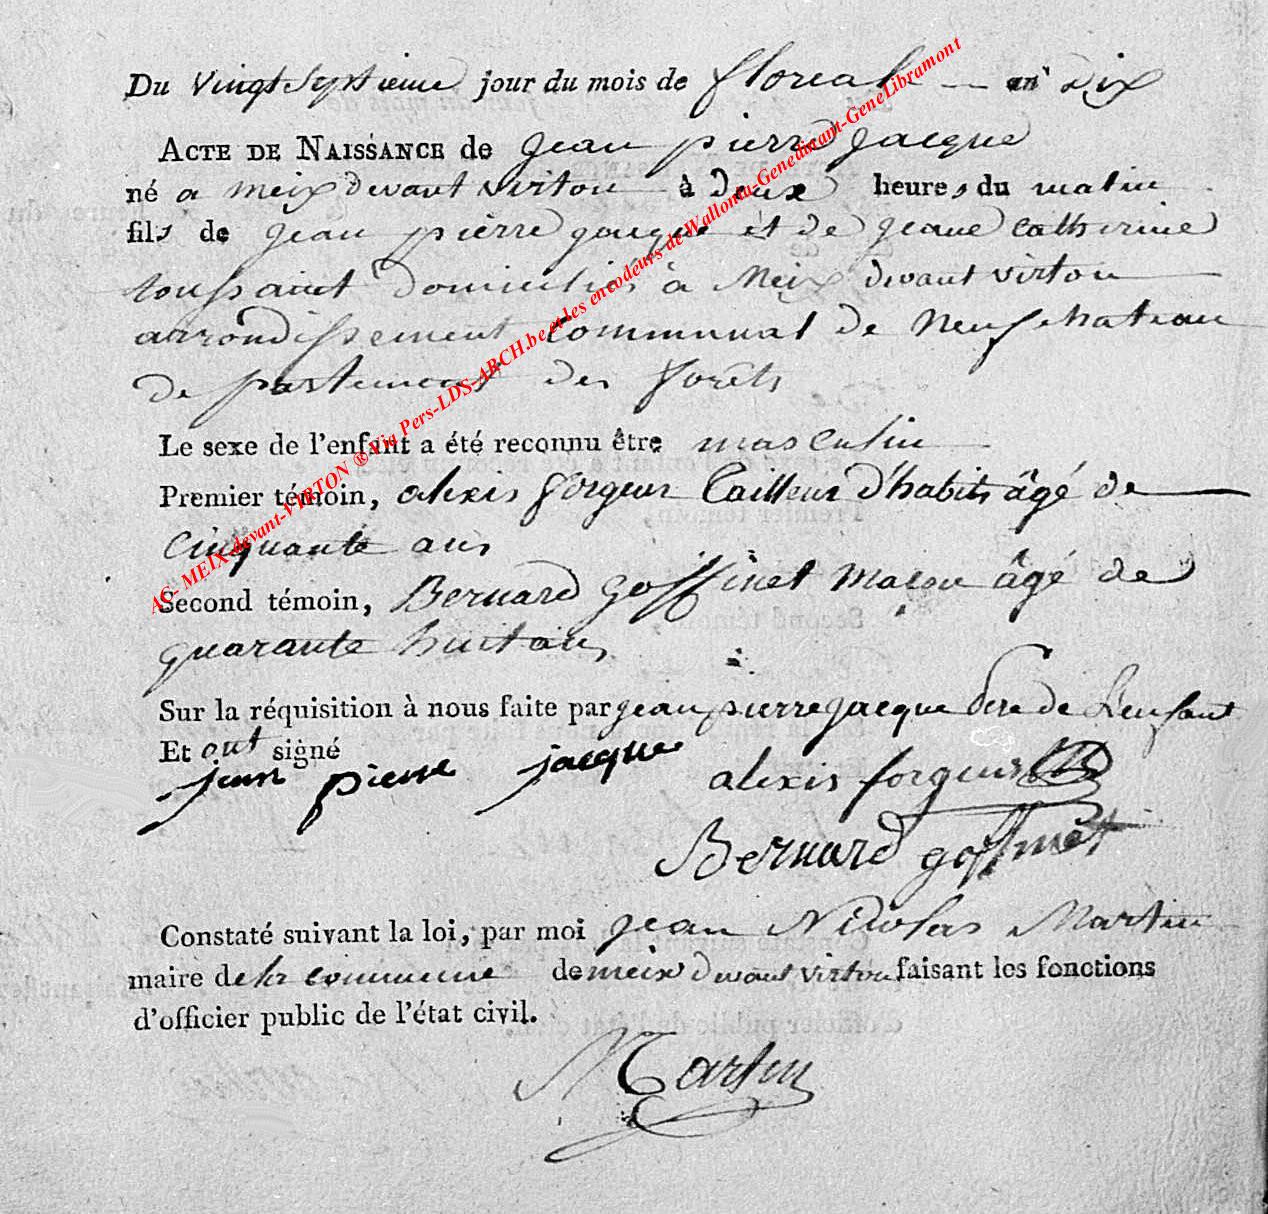 Du vingt Septieme jour du mois de floreal an dix
ACTE DE NAISSANCE de jean pierre jacque
né a meix devant virton à deux heures du matin
fils de jean pierre jacque et de jeane catherine
toussaint domiciliés à Meix devant virton
arrondissement Communal de Neufchateau
departement des forêts
Le sexe de l'enfant a été reconnu être masculin
Premier témoin, alexis forgeur tailleur d'habits âgé de
cinquante ans
Second témoin, Bernard goffinet maçon âgé de
quarante huit ans
Sur la réquisition à nous faite par jean pierre jacque pere de Lenfant
Et ont signé
jean pierre jacque
alexis forgeur
Bernard goffinet
Constaté suivant la loi, par moi jean Nicolas Martin
maire de la commune de meix devant virton faisant les fonctions
d'officier public de l'état civil.
Martin
AS- MEIX-devant-VIRTON ® Via Pers-LDS-ARCH.be et les encodeurs de Wallonia-Genedinant-GeneLibramont